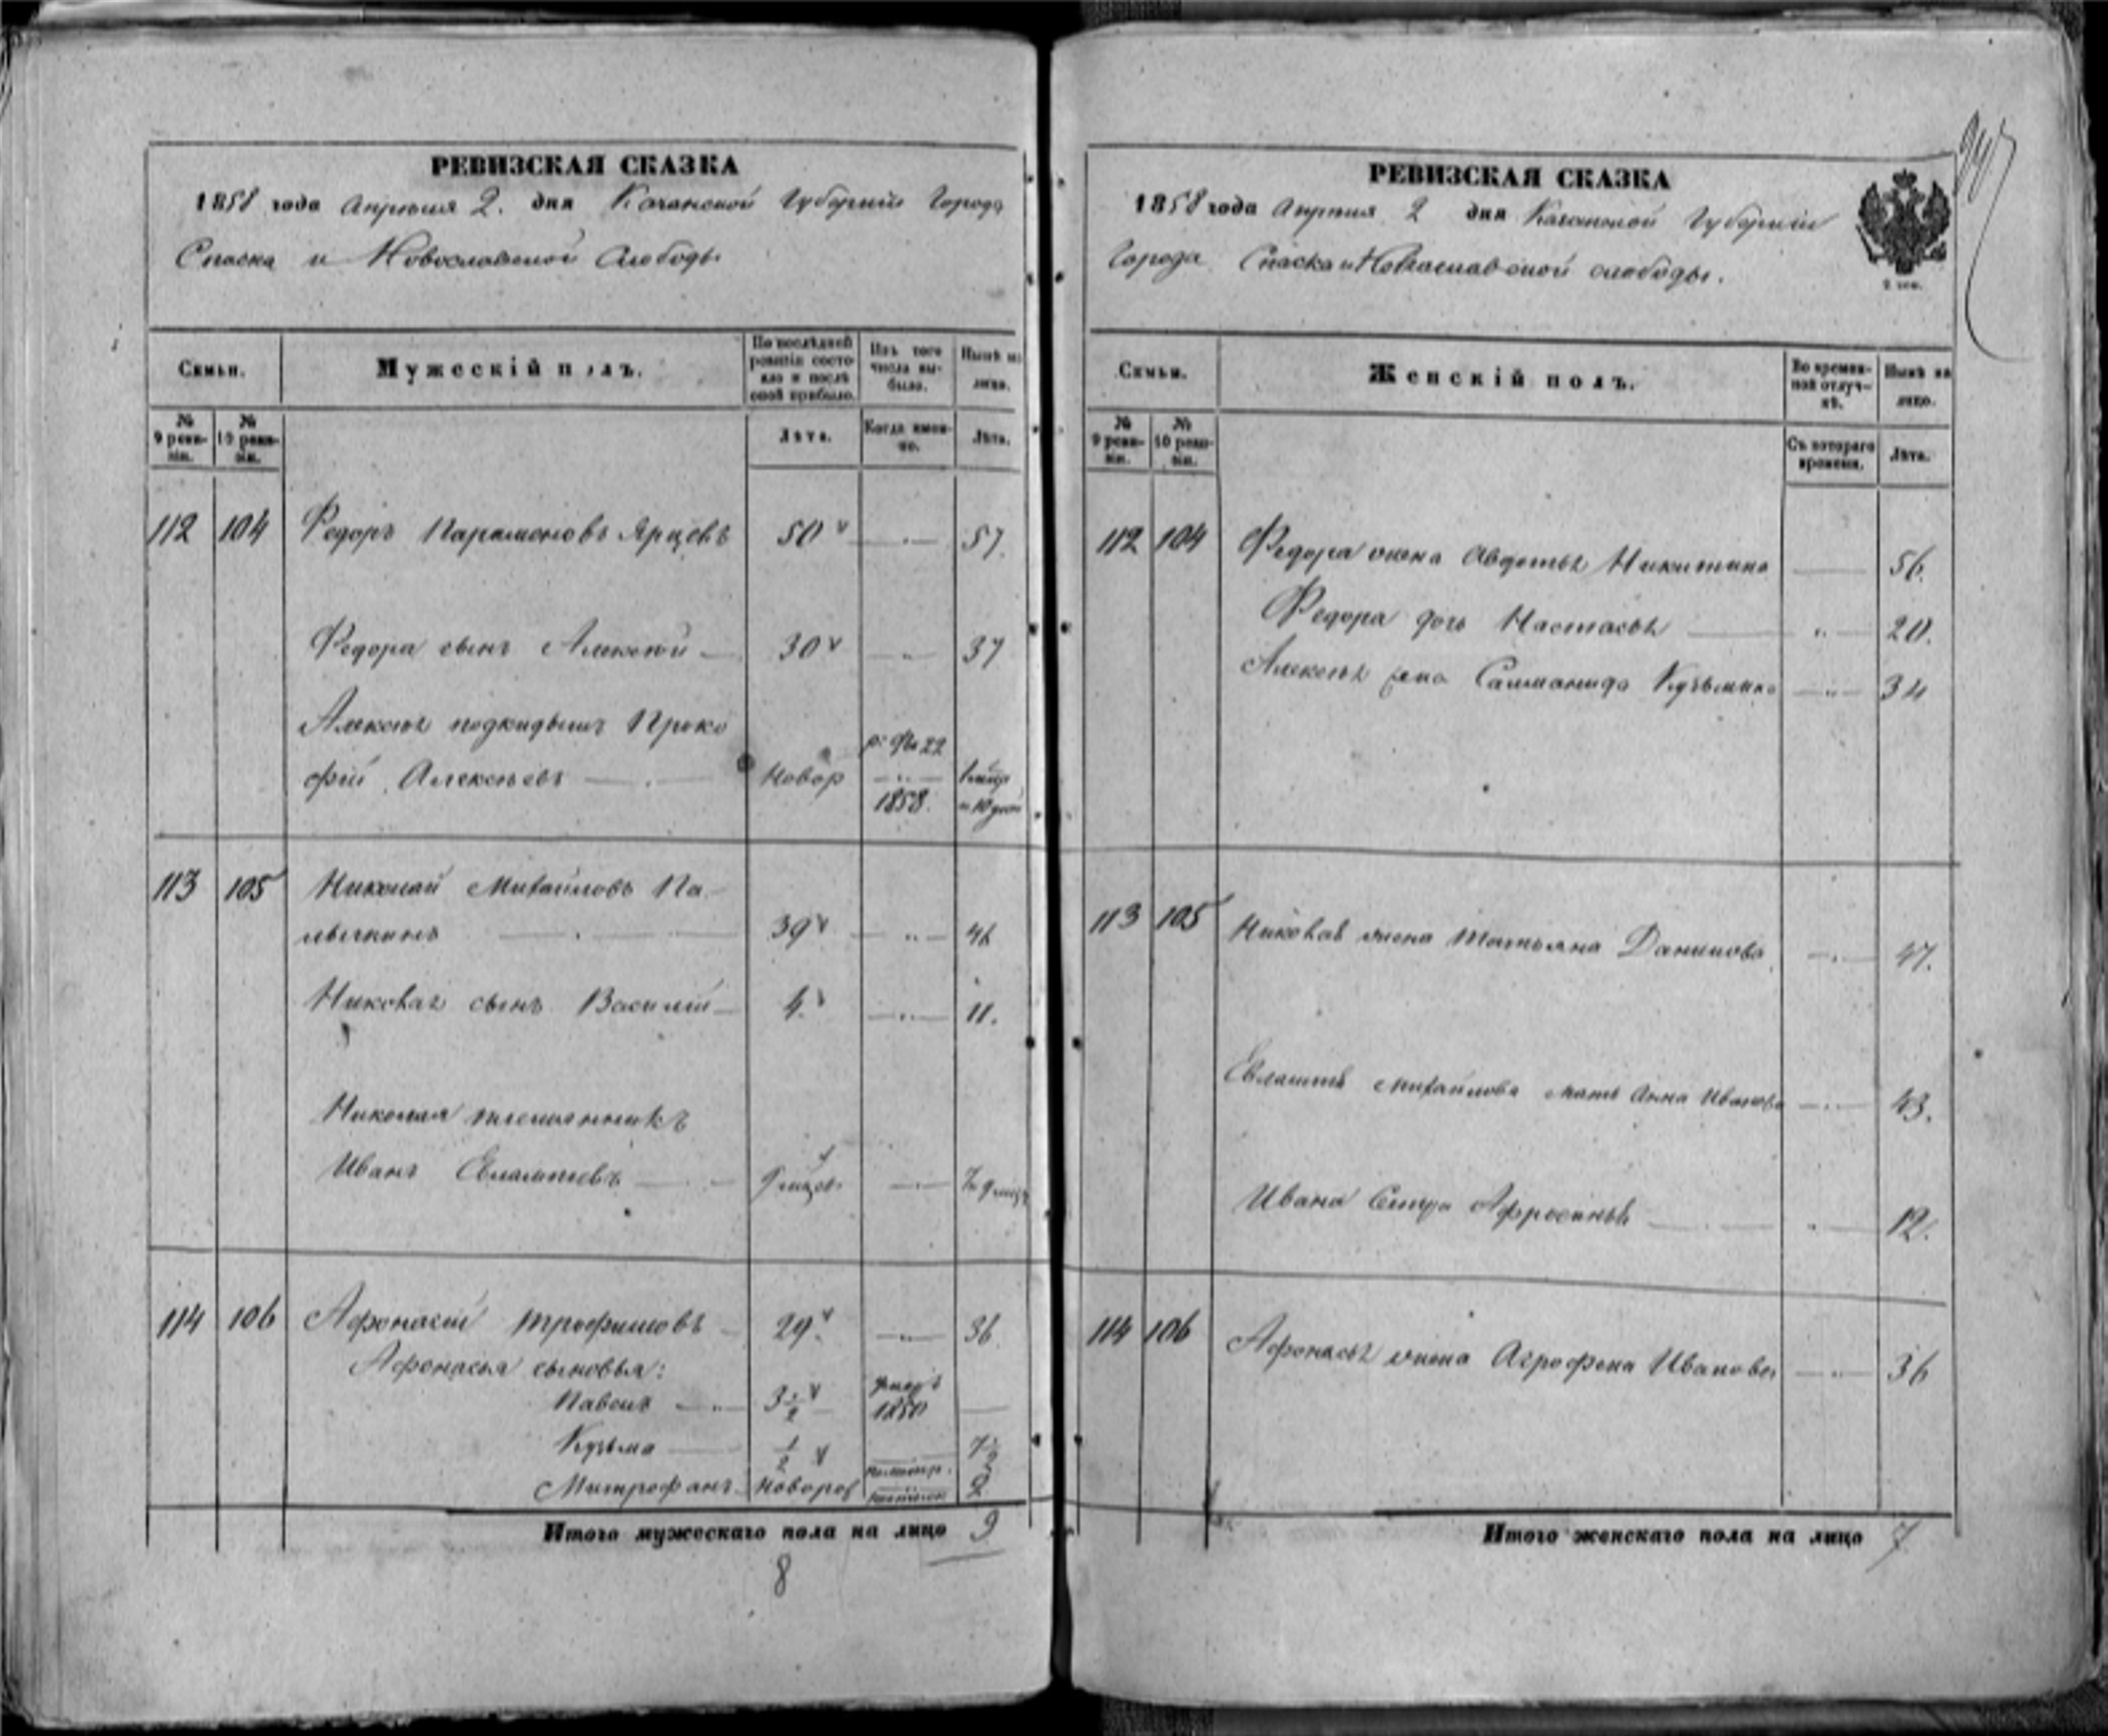 РЕВИЗСКАЯ СКАЗКА
1858 года Апрѣля 2. дня Казанской Губерніи Города
Спаска и Новославской Слободы
Семьи.
Мужескій полъ.
По послѣдней ревизіи состояло и послѣ оной прибыло.
Изъ того числа выбыло.
Нынѣ на лицо.
№ 9 ревизіи.
№ 10 ревизіи.
Лѣта.
Когда именно.
Лѣта.
112 104 Федоръ Парамоновъ Ярцевъ 50 57.
Федора сынъ Алексѣй 30 37
Алексѣя подкидышъ Проко
фій Алексѣевъ Новор 22 1858. 1 мѣс и 10 дней
113 105 Николай Михайловъ Па
лычкинъ 39 46
Николая сынъ Василій 4. 11.
Николая племянникъ
Иванъ Евлампіевъ 9 мѣсев 7 9 мѣсц
114 106 Афонасій Трофимовъ 29. 36
Афонасья сыновья:
Павелъ 3 1/2 1850
Кузьма 1/2 7 1/2
Митрофанъ Новорож 2
Итого мужескаго пола на лицо 9
8
РЕВИЗСКАЯ СКАЗКА
1858 года Апрѣля 2 дня Казанской Губерніи
Города Спаска и Новославской слободы.
Семьи.
Женскій полъ.
Во временной отлучкѣ.
Нынѣ на лицо.
№ 9 ревизіи.
№ 10 ревизіи.
Съ котораго времени.
Лѣта.
112 104 Федора жена Авдотья Никитина 56.
Федора дочь Настасья 20.
Алексѣя жена Саломанида Кузьмина 34
113 105 Николая жена Татьяна Данилова 47.
Евлампія Михайлова мать Анна Иванова 43.
Ивана Сестра Афросинья 12.
114 106 Афонасья жена Агрофена Иванова 36
Итого женскаго пола на лицо 7